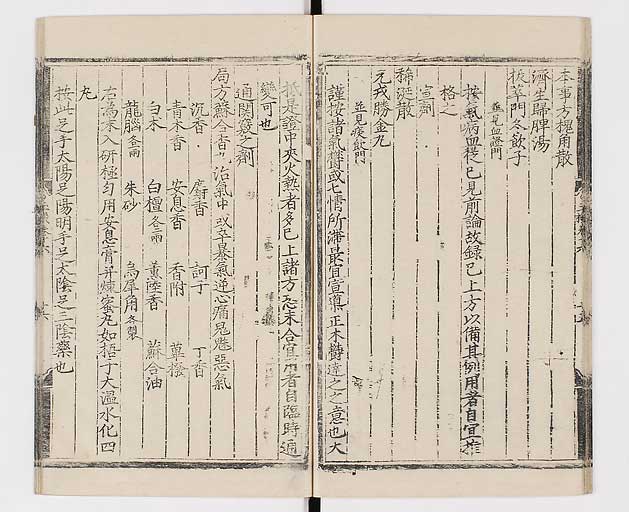 本事方槐角散
濟生歸脾湯
拔萃門冬飲子
並見血證門
按氣病血稷已見前論故録已上方以備其例用者自宜推
格之
宣劑
稀涎散
元戎勝金丸
並見痰飲門
謹按諸氣欝或七情所滯最宜宣導正木欝達之之意也大
抵是證中夾火熱者多已上諸方恐未合宜用者自臨時通
變可也
通関竅之劑
局方蘇合香丸 治氣中或卒暴氣逆心痛鬼魅惡氣
沉香 麝香 訶子 丁香
青木香 安息香 香附 蓽撥
白术 白檀各二兩 薫陸香 蘇合油
龍腦各一兩 朱砂 烏犀角各製
右為末入研極匀用安息膏并煉蜜丸如梧子大温水化四
丸
按此足手太陽足陽明手足太陰足三陰藥也